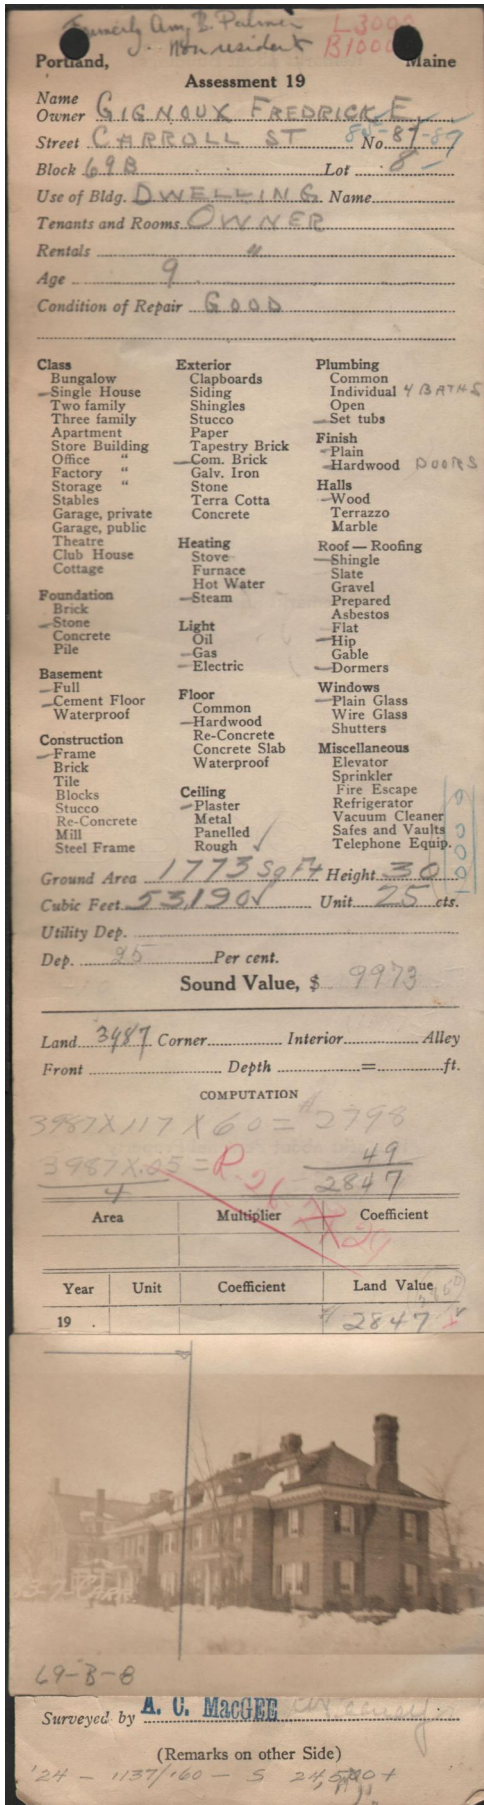 Formerly Amy B. Palmer L3000
Non resident B1000
Portland, Maine
Assessment 19
Name
Owner GIGNOUX FREDRICK E.
Street CARROLL ST No. 85-87-89
Block 69B Lot 8
Use of Bldg. DWELLING Name
Tenants and Rooms OWNER
Rentals "
Age 9
Condition of Repair GOOD
Class
Bungalow
Single House
Two family
Three family
Apartment
Store Building
Office "
Factory "
Storage "
Stables
Garage, private
Garage, public
Theatre
Club House
Cottage
Foundation
Brick
Stone
Concrete
Pile
Basement
Full
Cement Floor
Waterproof
Construction
Frame
Brick
Tile
Blocks
Stucco
Re-Concrete
Mill
Steel Frame
Exterior
Clapboards
Siding
Shingles
Stucco
Paper
Tapestry Brick
Com. Brick
Galv. Iron
Stone
Terra Cotta
Concrete
Heating
Stove
Furnace
Hot Water
Steam
Light
Oil
Gas
Electric
Floor
Common
Hardwood
Re-Concrete
Concrete Slab
Waterproof
Ceiling
Plaster
Metal
Panelled
Rough
Plumbing
Common
Individual 4 BATHS
Open
Set tubs
Finish
Plain
Hardwood DOORS
Halls
Wood
Terrazzo
Marble
Roof — Roofing
Shingle
Slate
Gravel
Prepared
Asbestos
Flat
Hip
Gable
Dormers
Windows
Plain Glass
Wire Glass
Shutters
Miscellaneous
Elevator
Sprinkler
Fire Escape
Refrigerator
Vacuum Cleaner
Safes and Vaults
Telephone Equip.
Ground Area 1773 Sq Ft Height 30
Cubic Feet 53,190 Unit 25 cts.
Utility Dep.
Dep. 25 Per cent.
Sound Value, $ 9973
Land 3987 Corner Interior Alley
Front Depth = ft.
COMPUTATION
3987 X 117 X 60 = $2798
3987 X .05 = 49
4 2847
Area Multiplier Coefficient
Year Unit Coefficient Land Value
19 . $ 2847
69-B-8
Surveyed by A. C. MacGEE
(Remarks on other Side)